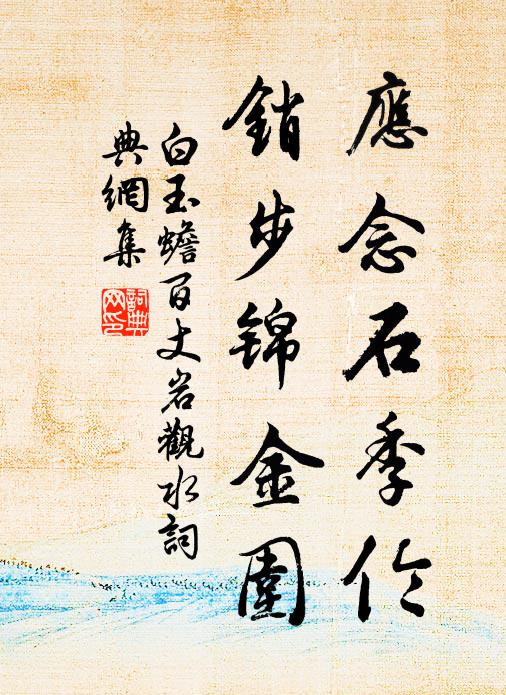 應念石季倫
銷步錦金圍
白玉蟾百丈岩觀水詞
典網集
詞典
网印